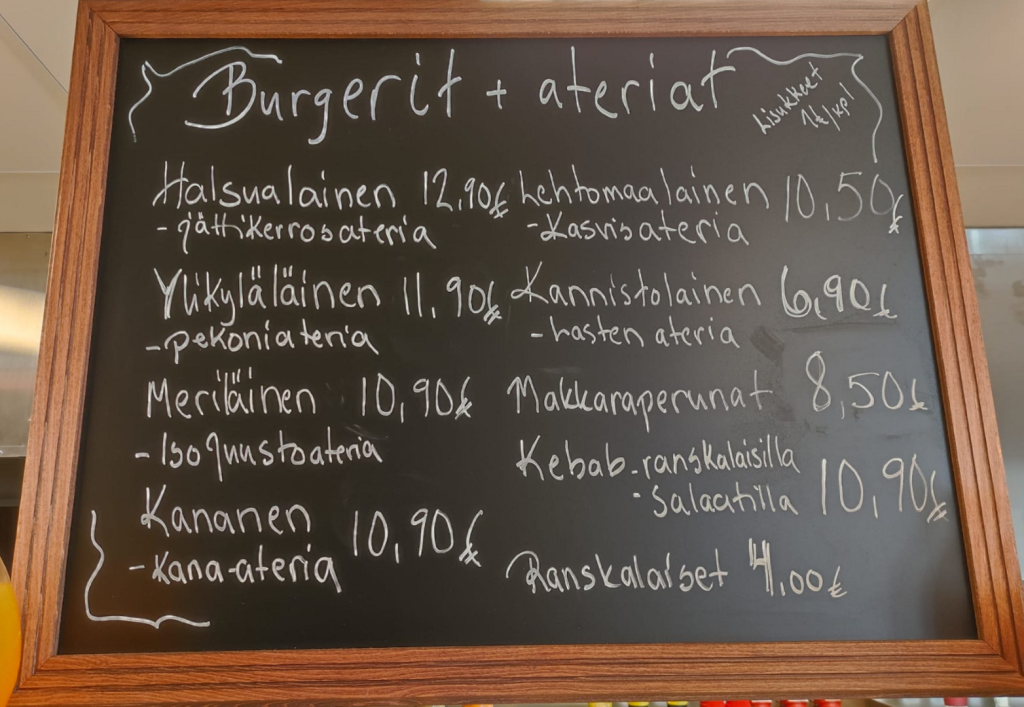 Burgerit + ateriat
Lisukkeet
1€/kpl
Halsualainen 12,90€
- jättikerrosateria
Ylikyläläinen 11,90€
- pekoniateria
Meriläinen 10,90€
- Iso juustoateria
Kananen 10,90€
- Kana-ateria
Lehtomaalainen 10,50€
- Kasvisateria
Kannistolainen 6,90€
- Lasten ateria
Makkaraperunat 8,50€
Kebab-ranskalaisilla
- Salaatilla 10,90€
Ranskalaiset 4,00€